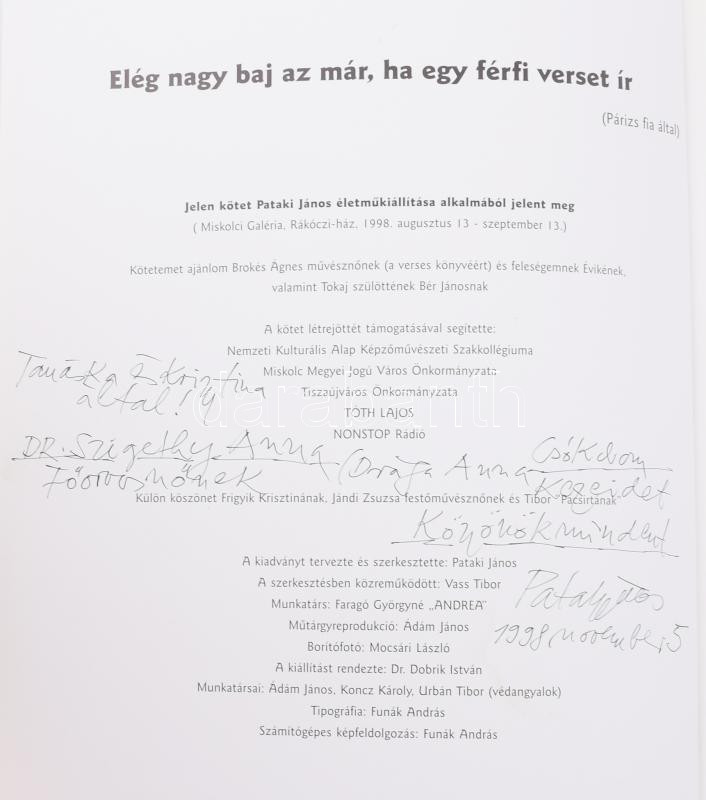 Elég nagy baj az már, ha egy férfi verset ír
(Párizs fia által)
Jelen kötet Pataki János életműkiállítása alkalmából jelent meg
( Miskolci Galéria, Rákóczi-ház, 1998. augusztus 13 - szeptember 13.)
Kötetemet ajánlom Brokés Ágnes művésznőnek (a verses könyvéért) és feleségemnek Évikének,
valamint Tokaj szülöttének Bér Jánosnak
A kötet létrejöttét támogatásával segítette:
Nemzeti Kulturális Alap Képzőművészeti Szakkollégiuma
Miskolc Megyei Jogú Város Önkormányzata
Tiszaújváros Önkormányzata
TÓTH LAJOS
NONSTOP Rádió
Tanáska Krisztina
által!
DR. Szigethy Anna
Főorvosnőnek
(Drága Anna
Csókolom
Kezeidet
Külön köszönet Frigyik Krisztinának, Jándi Zsuzsa festőművésznőnek és Tibor "Pacsirtának"
Köszönök mindent
A kiadványt tervezte és szerkesztette: Pataki János
A szerkesztésben közreműködött: Vass Tibor
Munkatárs: Faragó Györgyné „ANDREA"
Műtárgyreprodukció: Ádám János
Borítófotó: Mocsári László
A kiállítást rendezte: Dr. Dobrik István
Munkatársai: Ádám János, Koncz Károly, Urbán Tibor (védangyalok)
Tipográfia: Funák András
Számítógépes képfeldolgozás: Funák András
Pataki János
1998 november 5
darabanth